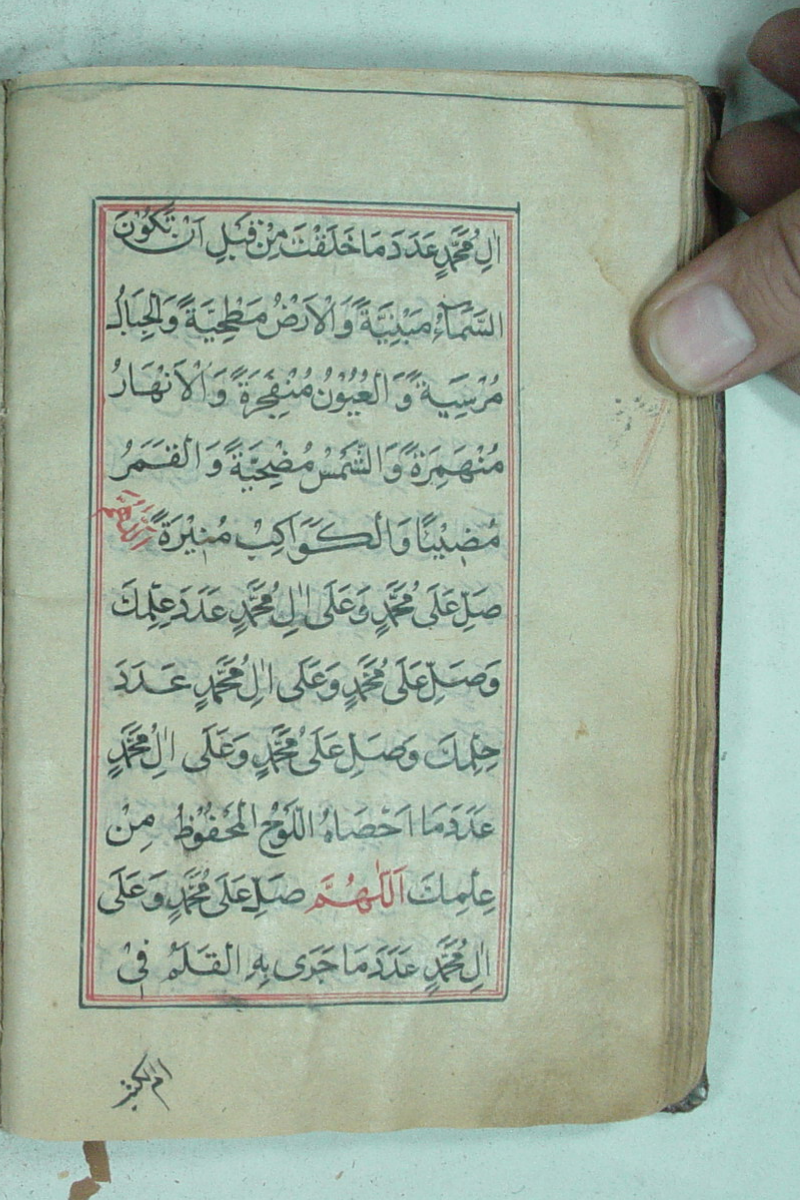 اٰلِ مُحَمَّدٍ عَدَدَ مَا خَلَقْتَ مِنْ قَبْلِ اَنْ تَكُوْنَ
السَّمَآءُ مَبْنِيَّةً وَالْاَرْضُ مَطْحِيَّةً وَالْجِبَالُ
مُرْسِيَةً وَالْعُيُوْنُ مُنْفَجِرَةً وَالْاَنْهَارُ
مُنْهَمِرَةً وَالشَّمْسُ مُضْحِيَّةً وَالْقَمَرُ
مُضِيْئًا وَالْكَوَاكِبُ مُنِيْرَةً اَللّٰهُمَّ
صَلِّ عَلَى مُحَمَّدٍ وَعَلَى اٰلِ مُحَمَّدٍ عَدَدَ عِلْمِكَ
وَصَلِّ عَلَى مُحَمَّدٍ وَعَلَى اٰلِ مُحَمَّدٍ عَدَدَ
حِلْمِكَ وَصَلِّ عَلَى مُحَمَّدٍ وَعَلَى اٰلِ مُحَمَّدٍ
عَدَدَ مَا اَحْصَاهُ اللَّوْحُ الْمَحْفُوْظُ مِنْ
عِلْمِكَ اَللّٰهُمَّ صَلِّ عَلَى مُحَمَّدٍ وَعَلَى
اٰلِ مُحَمَّدٍ عَدَدَ مَا جَرَى بِهِ الْقَلَمُ فِىْ
ام الكتب